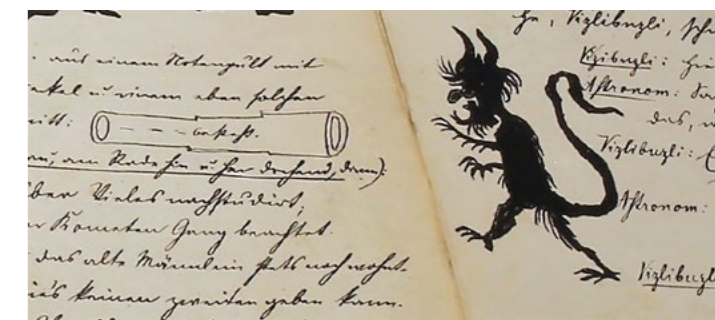 aus einem Notenpult mit
u. einem eben solchen
itt: – – – besteht.
am Rade hin u. her drehend, dann):
ber Vieles nachstudirt,
r Kometen Gang beachtet.
das alte Männlein stets noch wohnt.
keinen zweiten geben kann.
he, Vizlibuzli, sch
Vizlibuzli: hie
Astronom: Da
das, w
Vizlibuzli:
Astronom:
Vizlibuzl